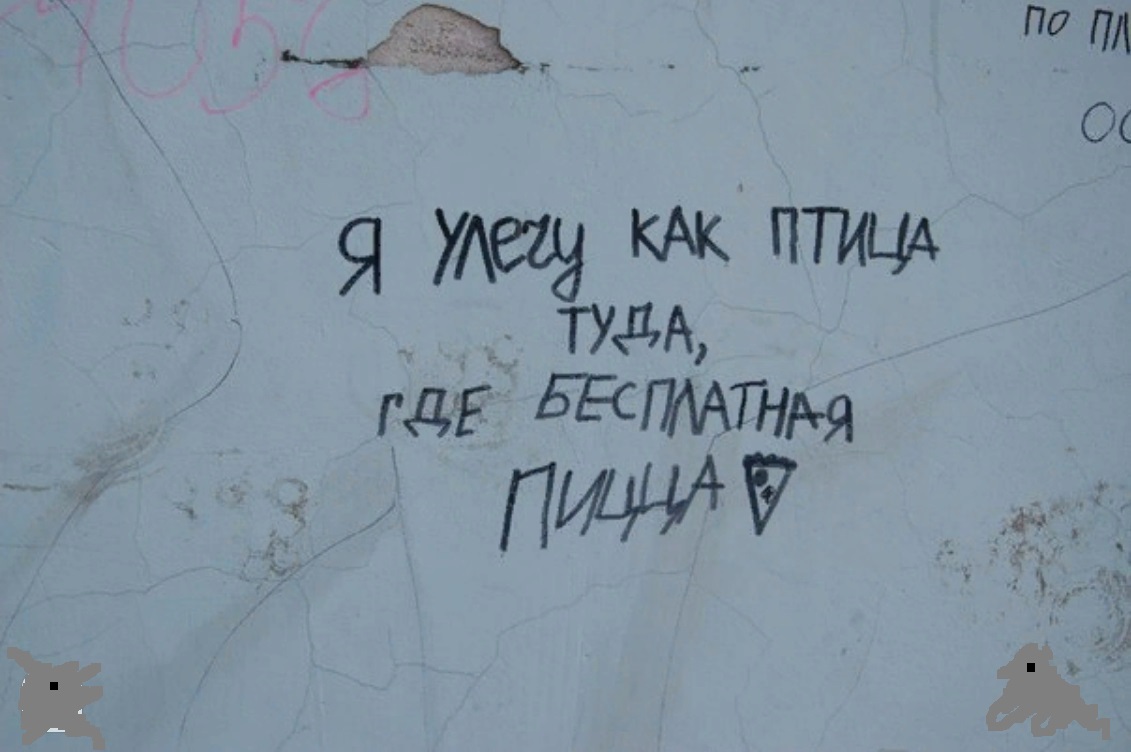 по
Я улечу КАК ПТИЦА
ТУДА,
гДЕ БЕСПЛАТНАЯ
ПИЦЦА